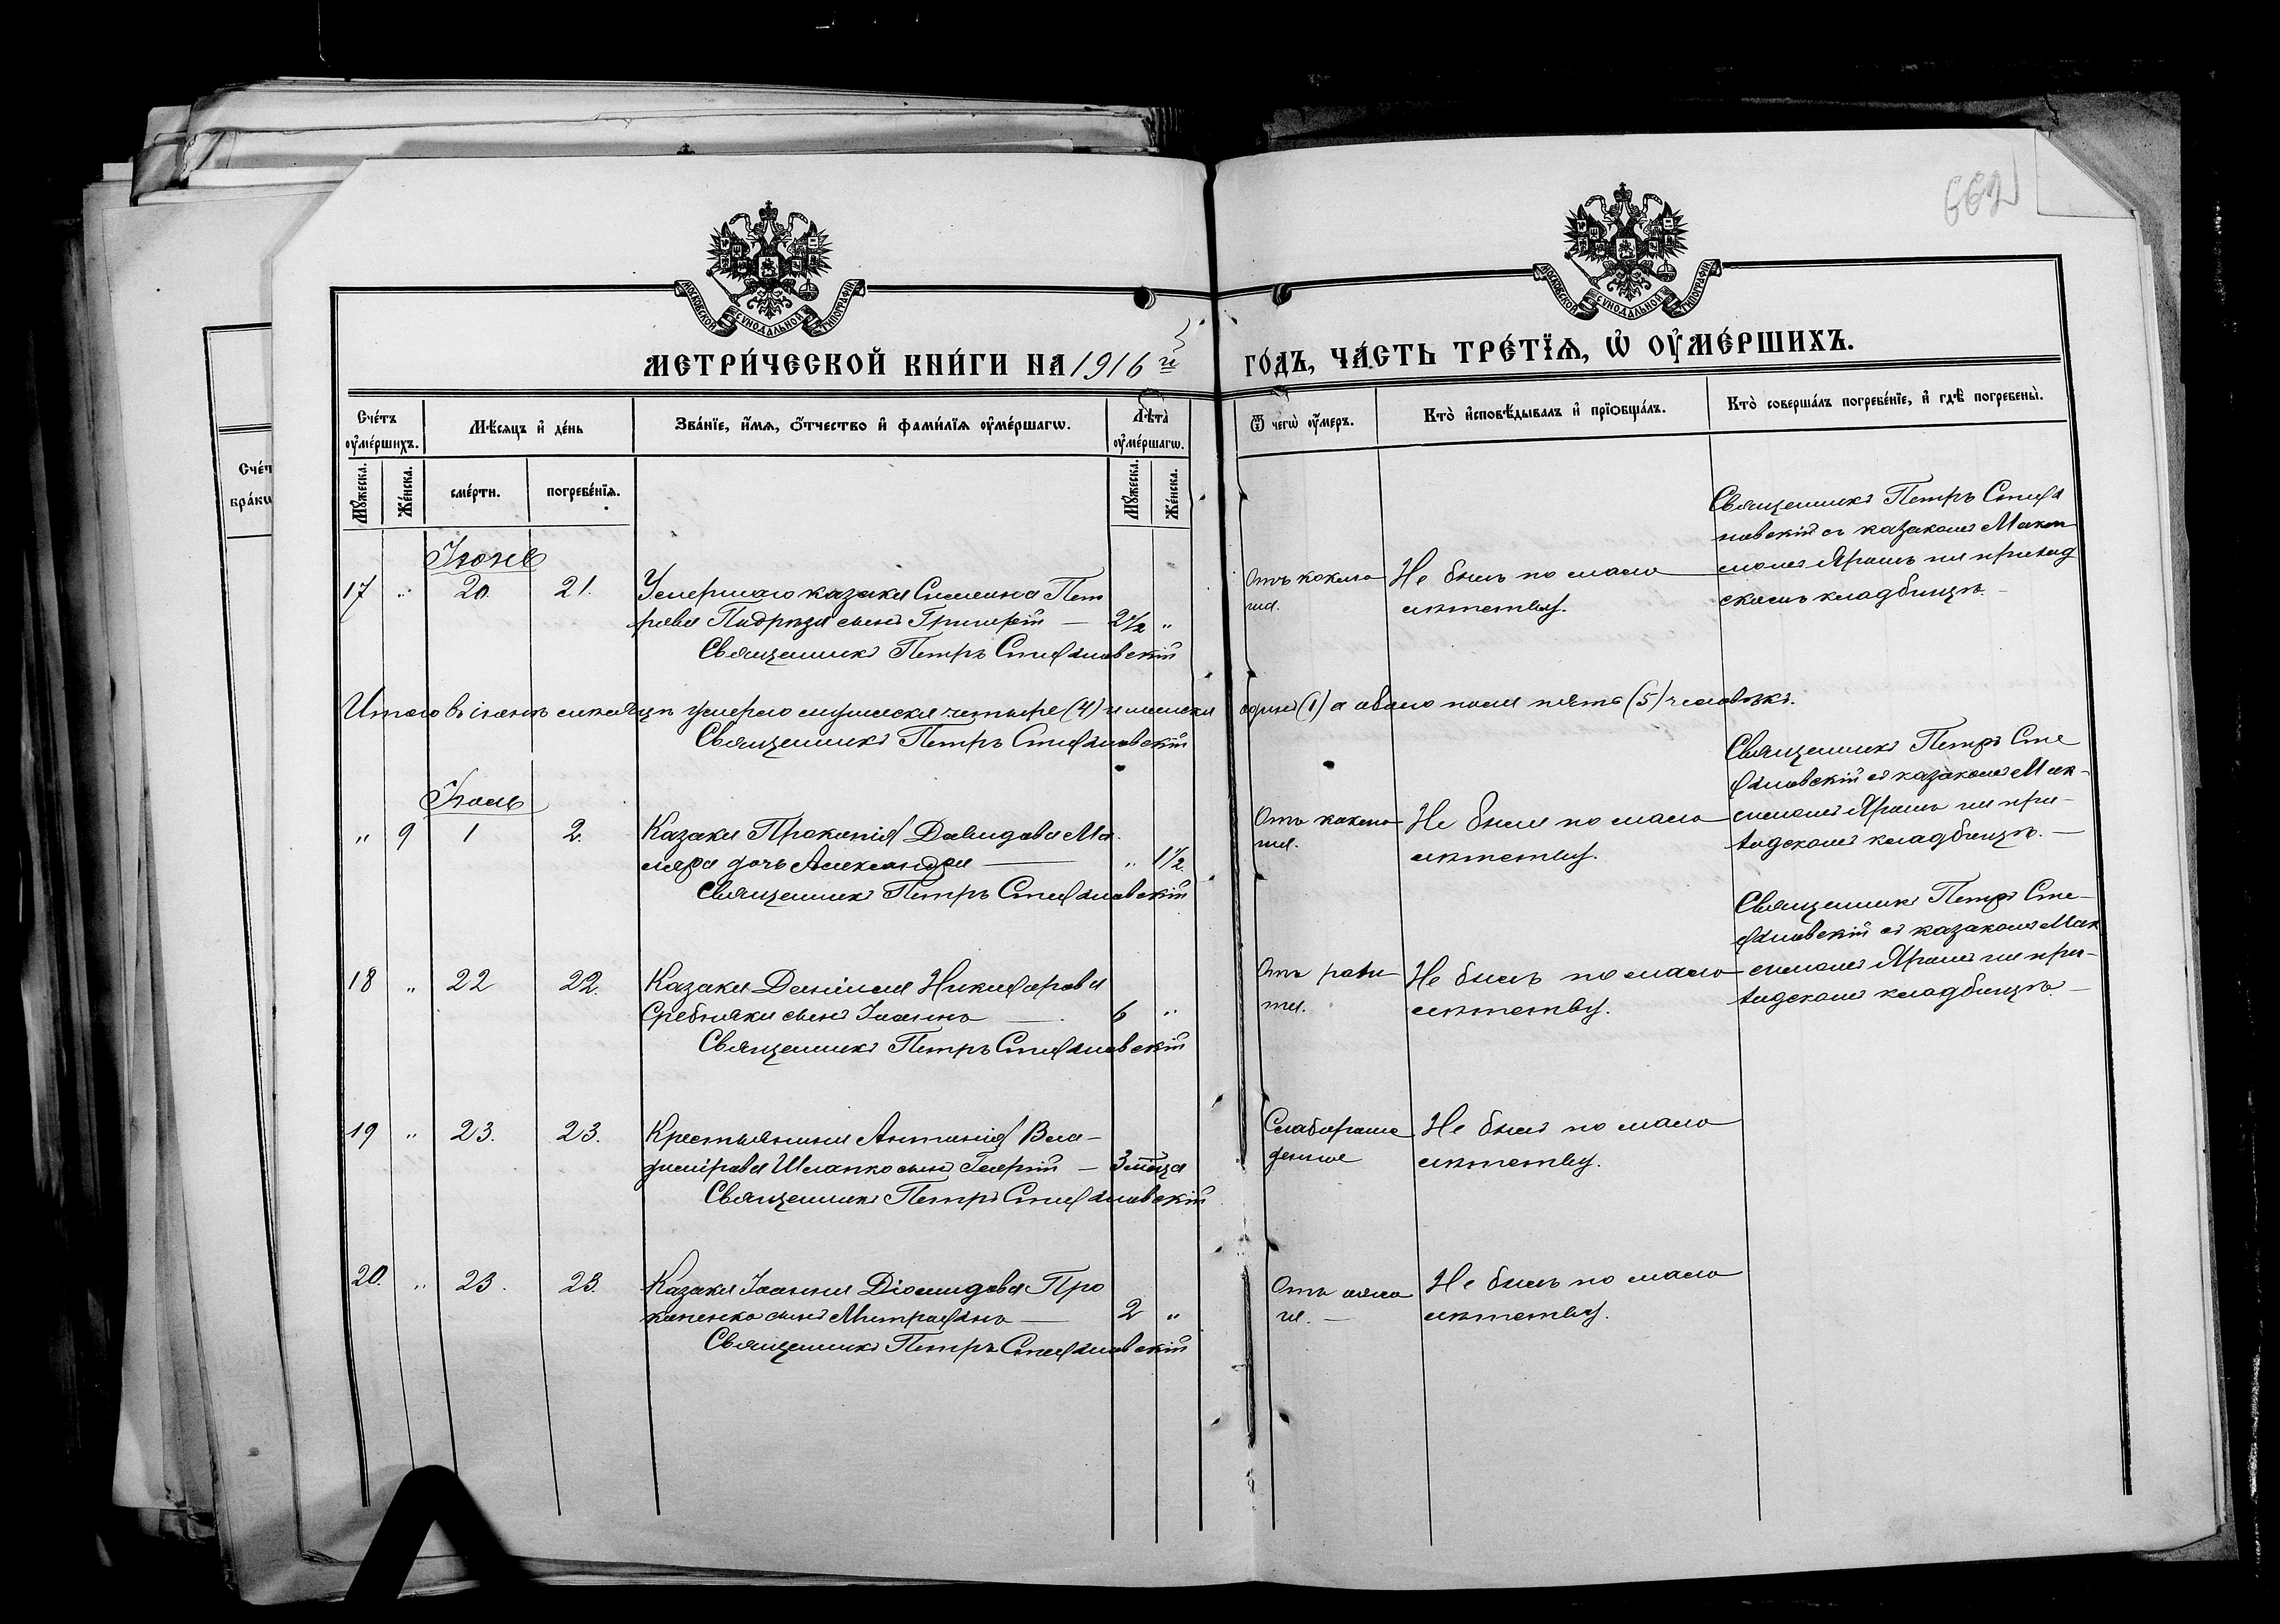 662
МОСКОВСКОЙ СУНОДАЛЬНОЙ ТИПОГРАФІИ
МОСКОВСКОЙ СУНОДАЛЬНОЙ ТИПОГРАФІИ
МЕТРИ́ЧЕСКОЙ КНИ́ГИ НА 1916 й
ГО́ДЪ, ЧА́СТЬ ТРЕ́ТЇѦ, Ѡ҆ ОУ҆МЕ́РШИХЪ.
Сче́тъ оу҆ме́ршихъ.
Мѣ́сѧцъ и҆ де́нь
Зва́нїе, и҆́мѧ, о҆́тчество и҆ фами́лїѧ оу҆ме́ршагѡ.
Лѣ́та оу҆ме́ршагѡ.
Ѿ чегѡ̀ оу҆́меръ.
Кто̀ и҆сповѣ́дывалъ и҆ прїѡбща́лъ.
Кто̀ соверша́лъ погребе́нїе, и҆ гдѣ̀ погребены̀.
Мꙋ́жеска.
Же́нска.
сме́рти.
погребе́нїѧ.
Мꙋ́жеска.
Же́нска.
Сче́т
бра́кѡ
Іюнь
17 " 20. 21. Умершаго казака Симеона Пет
рова Подрѣза сынъ Григорій — 2½ "
Священникъ Петръ Стефановскій
Отъ коклю
ша.
Не былъ по мало
лѣтству.
Священникъ Петръ Стефа
новскій съ казакомъ Макси
момъ Ярошъ на приход
скомъ кладбищѣ. —
Итого въ іюнѣ мѣсяцѣ умерло мужеска четыре (4) и женска
одинъ (1) а обоего пола пять (5) человѣкъ.
Священникъ Петръ Стефановскій
Іюль
" 9 1 2. Казака Прокопія Давидова Ма
ляра дочь Александра — " 1½.
Священникъ Петръ Стефановскій
Отъ коклю
ша.
Не была по мало
лѣтству.
Священникъ Петръ Сте
фановскій съ казакомъ Мак-
симомъ Ярошъ на при-
ходскомъ кладбищѣ. —
18 " 22 22. Казака Даніила Никифорова
Сребняка сынъ Іоаннъ — 6 "
Священникъ Петръ Стефановскій
Отъ
Не былъ по мало
лѣтству.
Священникъ Петръ Сте-
фановскій съ казакомъ Мак
симомъ Ярошъ на при-
ходскомъ кладбищѣ. —
19 " 23. 23. Крестьянина Антонія Вла-
димірова Шлапко сынъ — 3 мѣсяца
Священникъ Петръ Стефановскій
Слаборож
денное
Не былъ по мало
лѣтству.
20. " 23. 23. Казака Іоанна Діомидова Про
копенко сынъ Митрофанъ — 2 "
Священникъ Петръ Стефановскій
Отъ
Не былъ по мало
лѣтству.